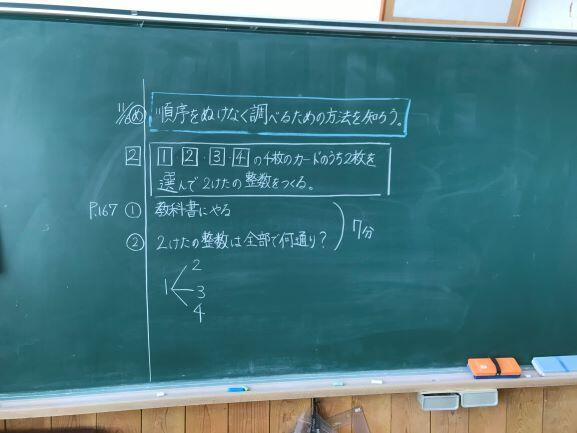 11/6 め 順序をぬけなく調べるための方法を知ろう。
2 1 2 3 4 の4枚のカードのうち2枚を
選んで2けたの整数をつくる。
P.167 ① 教科書にやる
② 2けたの整数は全部で何通り?
7分
2
1 3
4